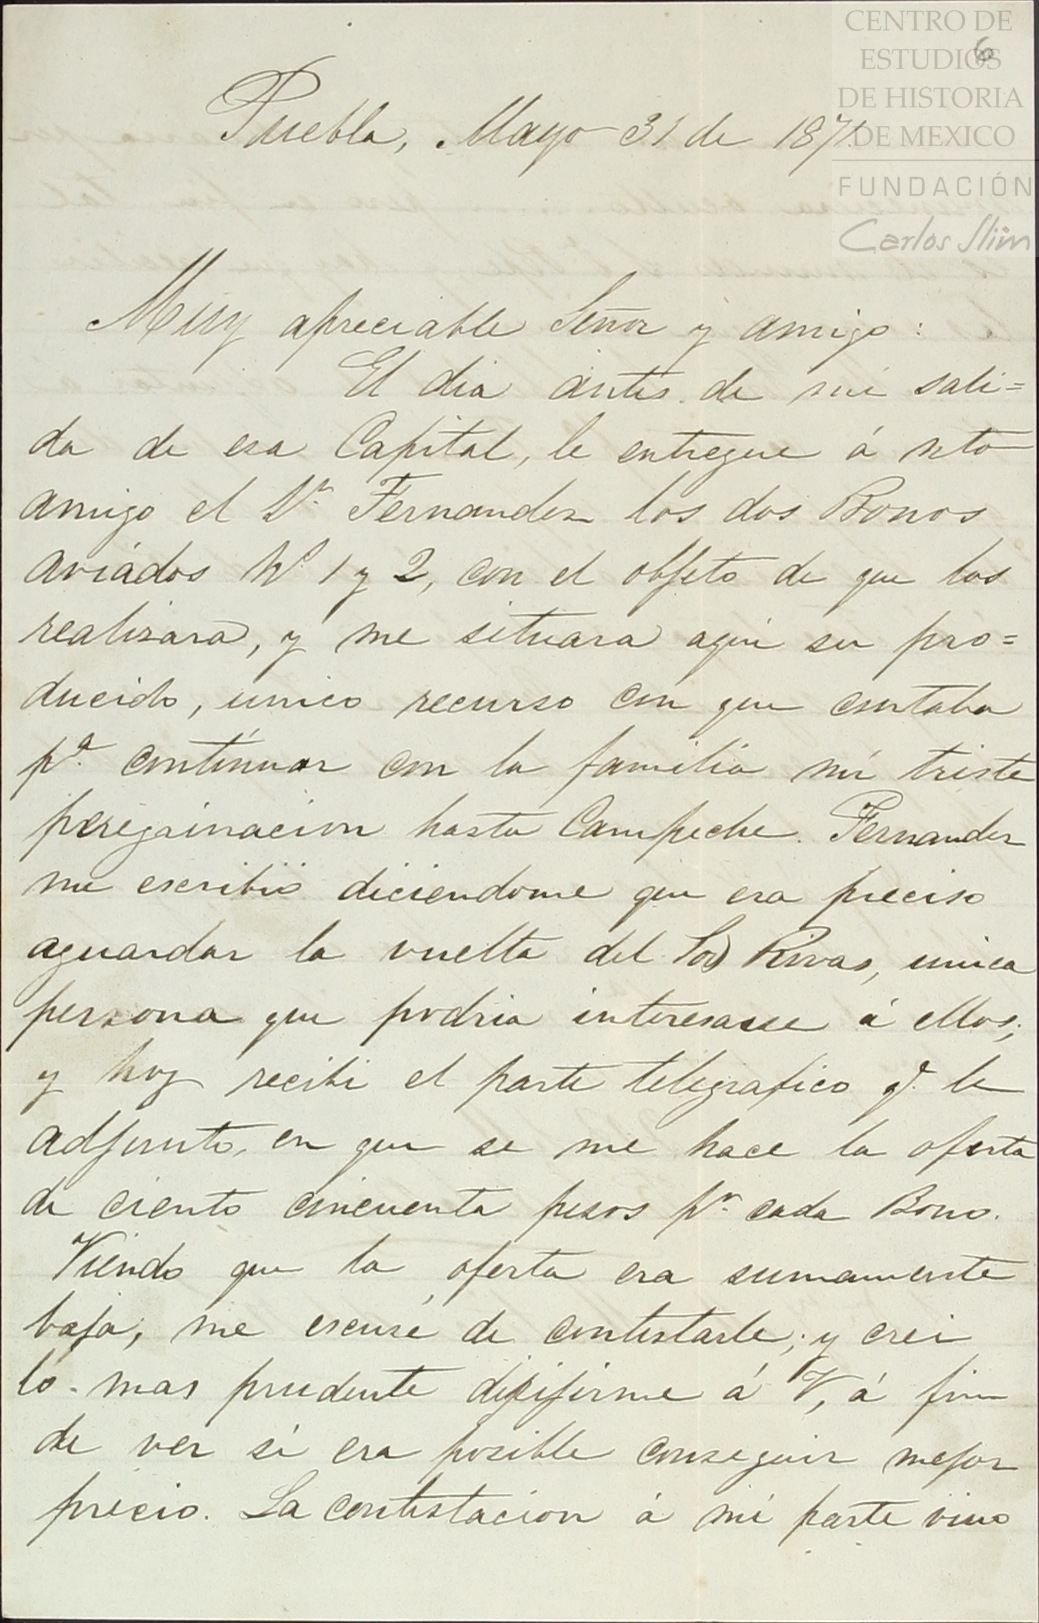 CENTRO DE
ESTUDIOS
DE HISTORIA
DE MEXICO
FUNDACIÓN
Carlos Slim
6
Puebla, Mayo 31 de 1871.
Muy apreciable Señor y amigo:
El dia ántes de mi sali=
da de esa Capital, le entregue á nto
amigo el Dr. Fernandez los dos Bonos
aviádos No. 1 y 2, con el objeto de que los
realizara, y me situara aqui su pro=
ducido, unico recurso con que contaba
pa. contínuar con la familia mi triste
peregrinacion hasta Campeche. Fernandez
me escribió diciendome que era preciso
aguardar la vuelta del Sor Rivas, unica
persona que podria interesarse á ellos;
y hoy recibi el parte telegrafico q. le
adjunto, en que se me hace la oferta
de ciento cincuenta pesos pr. cada Bono.
Viendo que la oferta era sumamente
baja, me escuse de contestarle; y crei
lo mas prudente dirijirme á V, á fin
de ver si era posible conseguir mejor
precio. La contestacion á mi parte vino